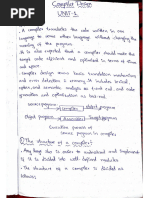 Compiler Design
UNIT-1
. A compiler translates the code written in one
language to some other language without changing the
meaning of the program.
. It is also expected that a compiler should make the
target code efficient and optimized in terms of time and
space.
. Compiler design covers basic translation mechanism
and error detection & recovery. It includes lexical,
syntax, and semantic analysis as front end, and code
generation and optimization as back-end.
source program
→ Compiler → object program
object program
→ Assembler → Target program
Execution process of
source program in compiler
① The structure of a compiler:
. Any large s/w is easy to understand and implement
if it is divided into well-defined modules.
. The structure of a compiler is divided as
follows